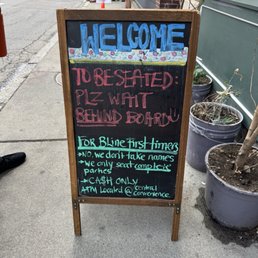 WELCOME
TO BE SEATED:
PLZ WAIT
BEHIND BOARD
FOR BLine First timers
→ NO, we don't take names
→ we only seat complete
parties
→ CASH ONLY
ATM Located @ Central
Convenience